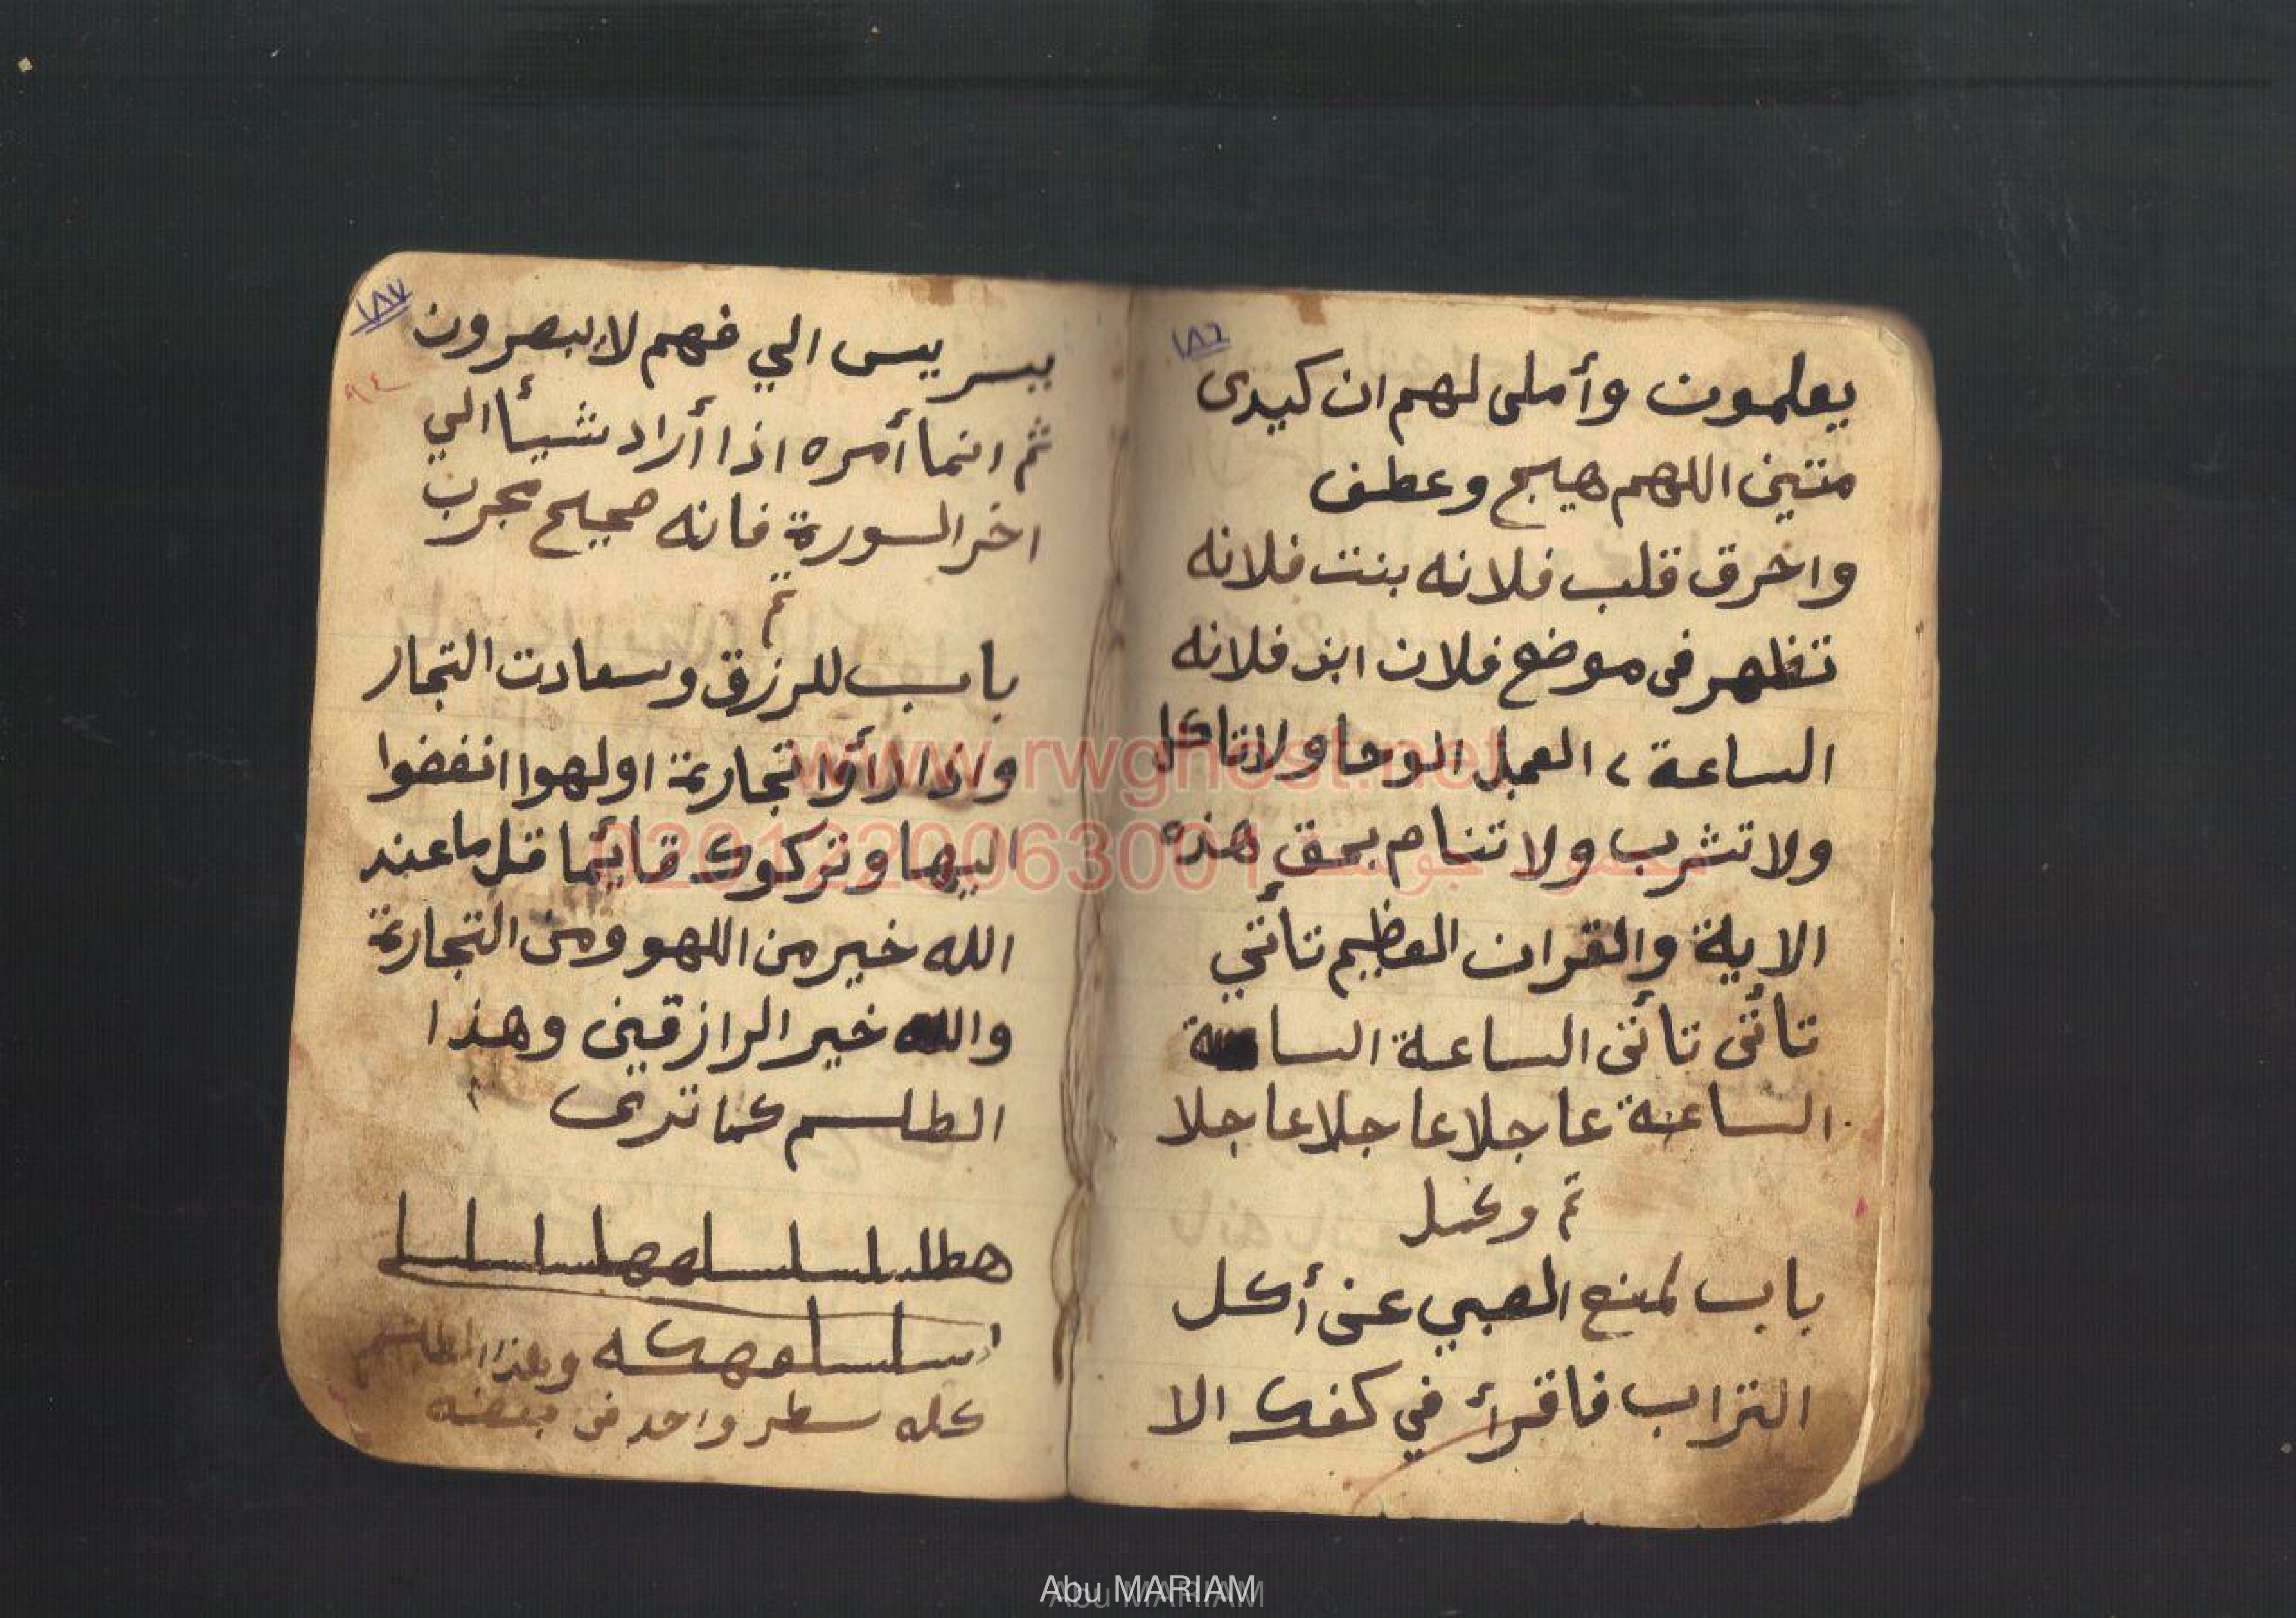 ١٨٦
يعلمون وأملى لهم ان كيدى
متين اللهم هيج وعطف
واحرق قلب فلانه بنت فلانه
تظهر فى موضع فلان ابن فلانه
الساعة، العجل الوحا ولاتاكل
ولا تشرب ولا تنام بحق هذه
الاية والقران العظيم تأتي
تأتى تأتى الساعة الساعة
الساعة عاجلا عاجلا عاجلا
تم وكمل
باب لمنع الصبي عن أكل
التراب فاقرأ في كفك الا
١٨٧
٩٤
يس الي فهم لا يبصرون
ثم انما أمره اذا أراد شيأ الي
اخر السورة فانه صحيح مجرب
تم
باب للرزق وسعادت التجار
واذا رأوا تجارة اولهوا انفضوا
اليها وتركوك قايما قل ما عند
الله خير من اللهو ومن التجارة
والله خير الرازقين وهذا
الطلسم كما ترى
وهذا الطلسم
كله سطر واحد في بعضه
www.rwghost.net
0201220063001
Abu MARIAM